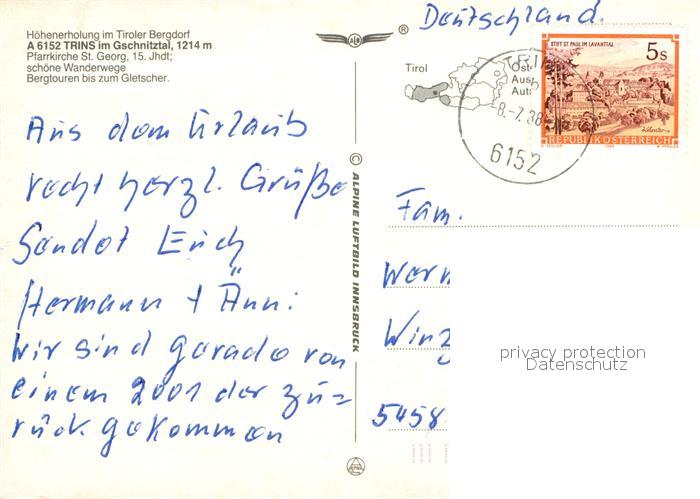 Höhenerholung im Tiroler Bergdorf
A 6152 TRINS im Gschnitztal, 1214 m
Pfarrkirche St. Georg, 15. Jhdt;
schöne Wanderwege
Bergtouren bis zum Gletscher.
Aus dem Urlaub
recht herzl. Grüße
Sendet Euch
Hermann + Änni
Wir sind gerade von
einem 2001 der zu=
rück gekommen
© ALPINE LUFTBILD INNSBRUCK
®
Deutschland.
Tirol
TRINS
Ost-
Aust
Autr
8.-7.88
6152
STIFT ST. PAUL IM LAVANTTAL
5s
REPUBLIK ÖSTERREICH
Fam.
Wern
Winz
5458
privacy protection
Datenschutz